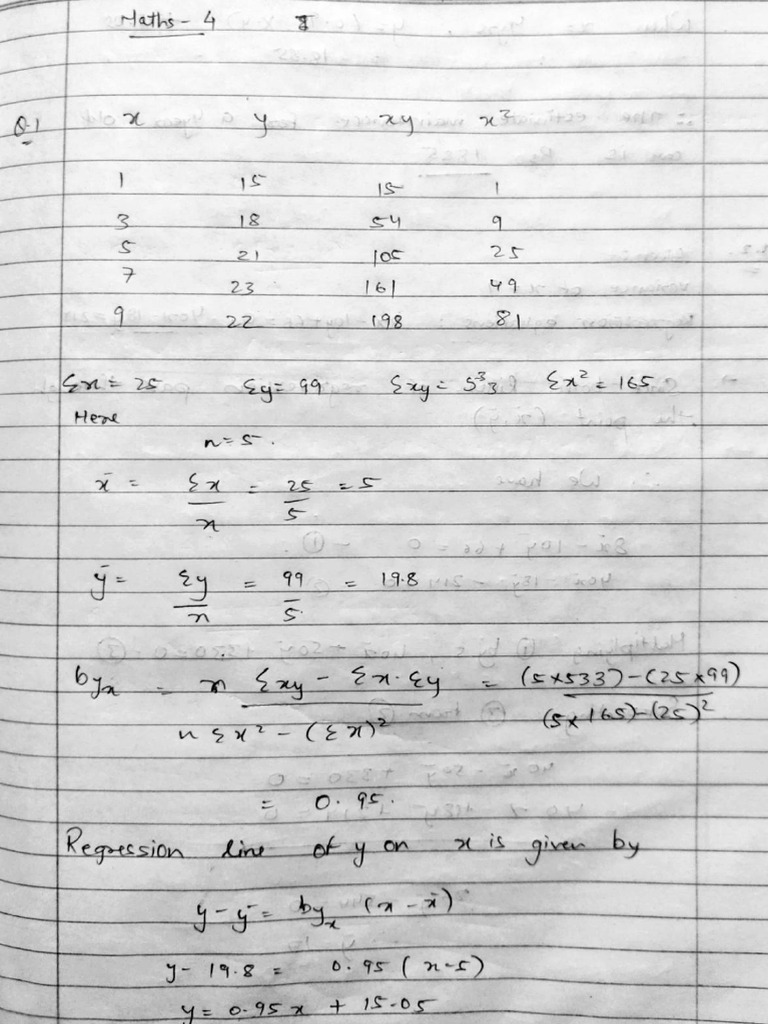 Maths - 4
Q.1 x y xy x²
1 15 15 1
3 18 54 9
5 21 105 25
7 23 161 49
9 22 198 81
Σx = 25 Σy = 99 Σxy = 533 Σx² = 165
Here
n = 5.
x̄ = Σx/n = 25/5 = 5
ȳ = Σy/n = 99/5 = 19.8
byx = n Σxy - Σx. Σy / n Σx² - (Σx)² = (5x533) - (25x99) / (5x165) - (25)²
= 0.95.
Regression line of y on x is given by
y - ȳ = byx (x - x̄)
y - 19.8 = 0.95 (x-5)
y = 0.95x + 15.05